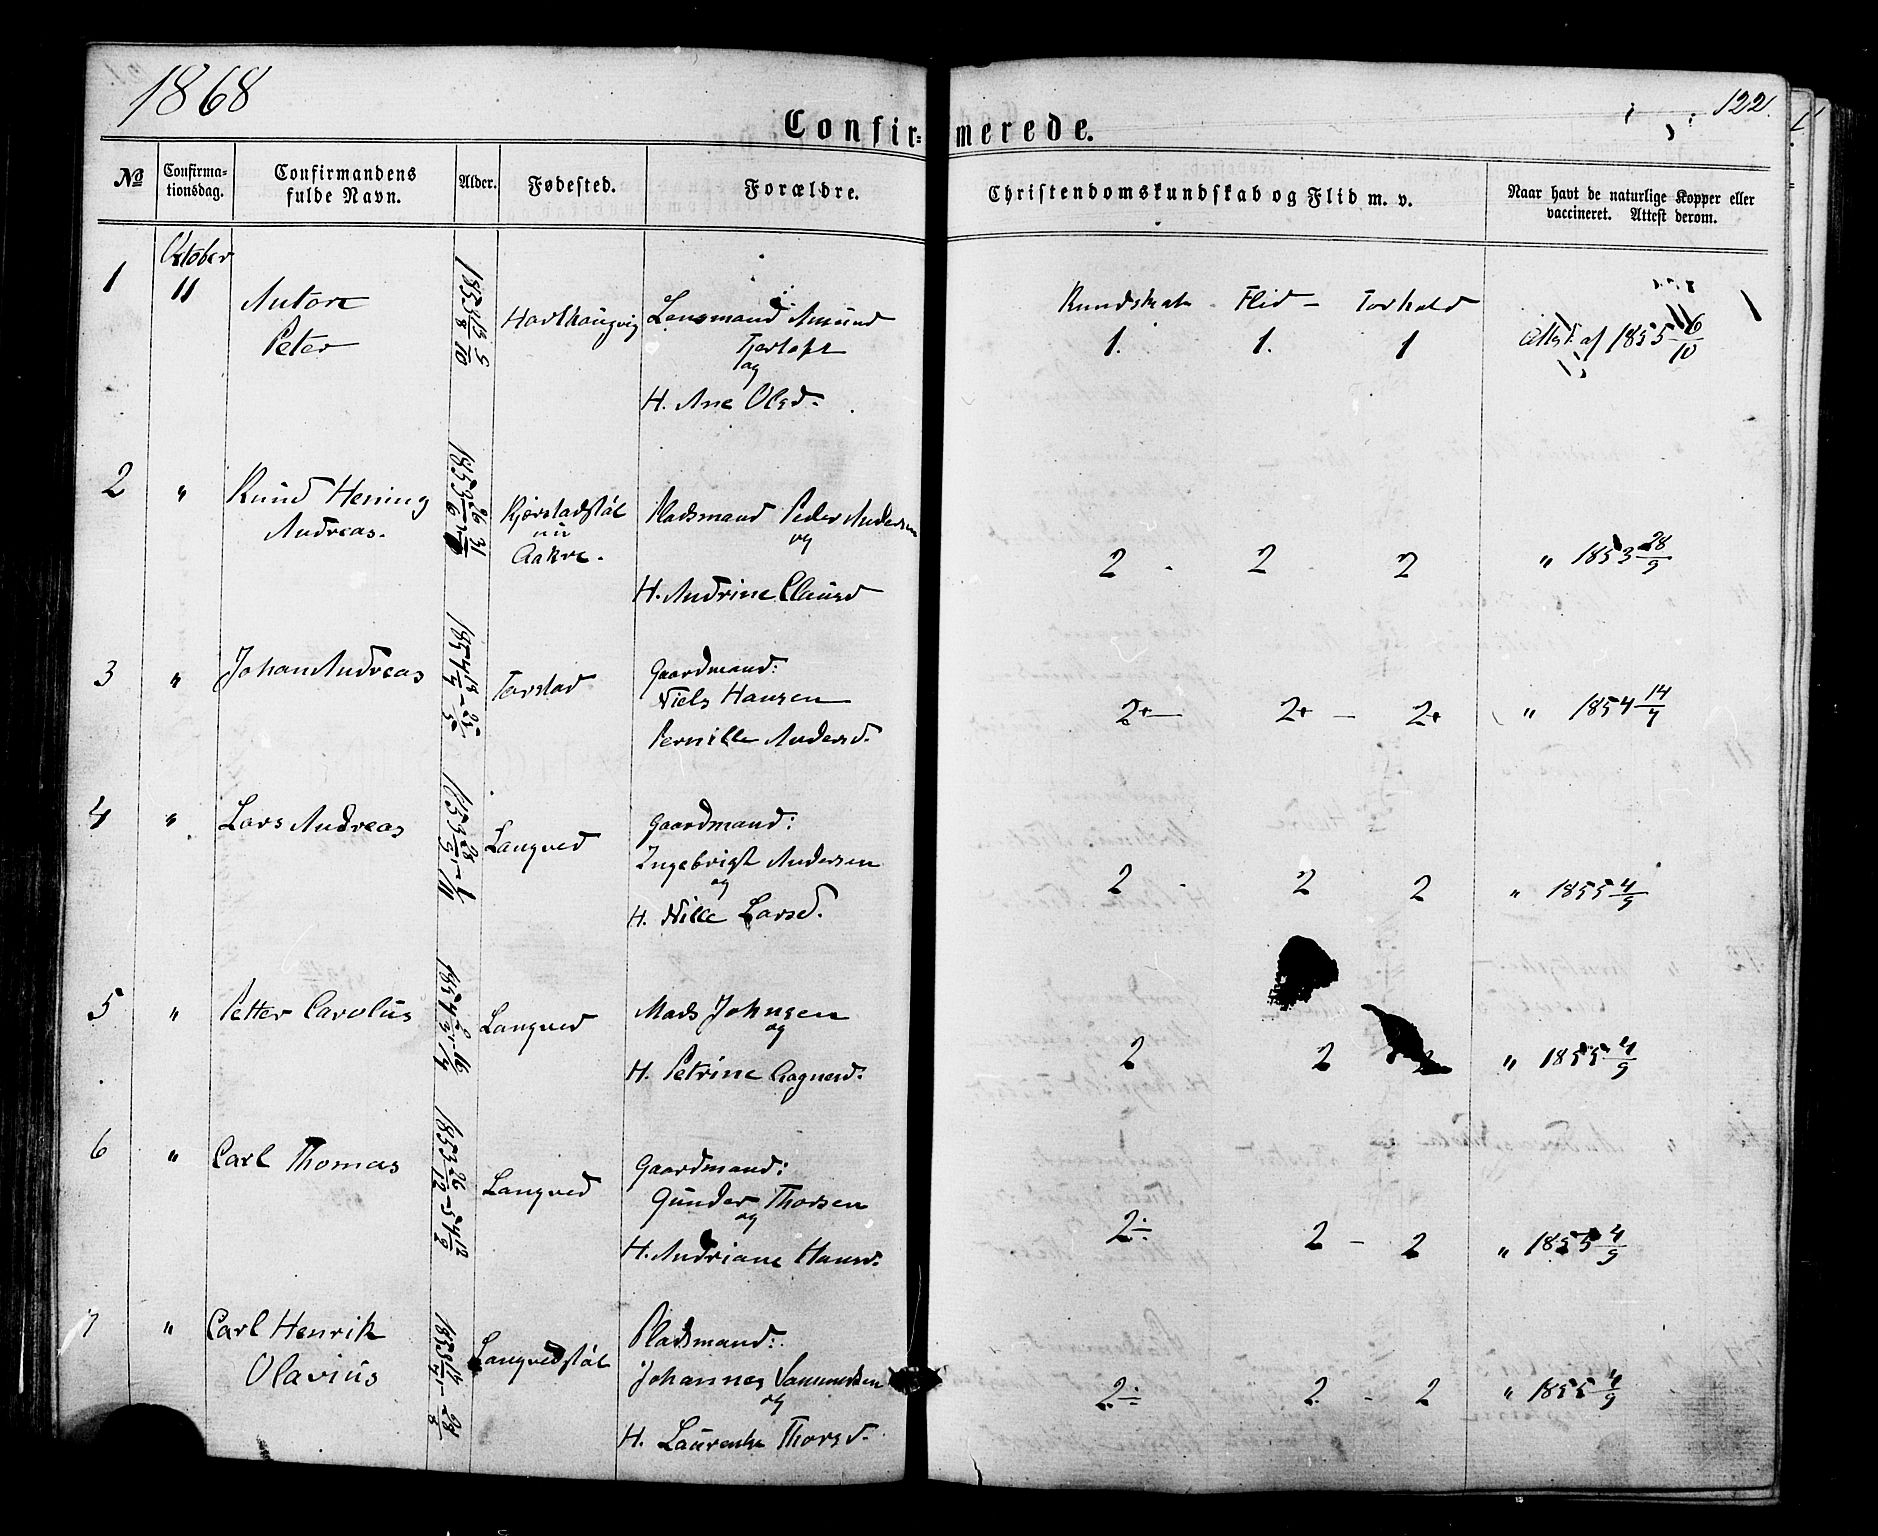 1868
122.
Confir-merede.
No
Confirma-tionsdag.
Confirmandens fulde Navn.
Alder.
Fødested.
Forældre.
Christendomskundskab og Flid m. v.
Naar havt de naturlige Kopper eller vaccineret. Attest derom.
Oktober
1 11 Anton
Peter
1853 13/8
Lensmand Amund
og
H. Ane Olsd.
Kundskab - Flid - Forhold
1. 1. 1
Attst. af 1855 6/10
2 " Knud Hening
Andreas.
1853 26/6
Kjørstadstøl
nu
Aakre.
Pladsmand Peder Andersen
og
H. Andrine Clausd
2 - 2 - 2
" 1853 28/9
3 " Johan Andreas
1854 13/4 - 25/5
Torstad
Gaardmand:
Niels Hansen
Pernille Andersd.
2+ - 2+ - 2+
" 1854 14/7
4 " Lars Andreas
Langved
Gaardmand:
Ingebrigt Andersen
og
H. Nille Larsd.
2 - 2 2
" 1855 4/9
5 " Petter Carolus
1854 2/3 - 16/4
Langved
Mads Johnsen
og
H. Petrine Aagnesd.
2 2 2
" 1855 4/9
6 " Carl Thomas
1853 26/12 - 54 12/2
Langved
Gaardmand:
Gunder Thorsen
og
H. Andriane Hansd.
2÷ 2 - 2
" 1855 4/9
7 " Carl Henrik
Olavius
Langvedstøl
Pladsmand:
Johannes Sammelsen
og
H. Laurentse Thorsd.
2÷ 2 - 2
" 1855 4/9